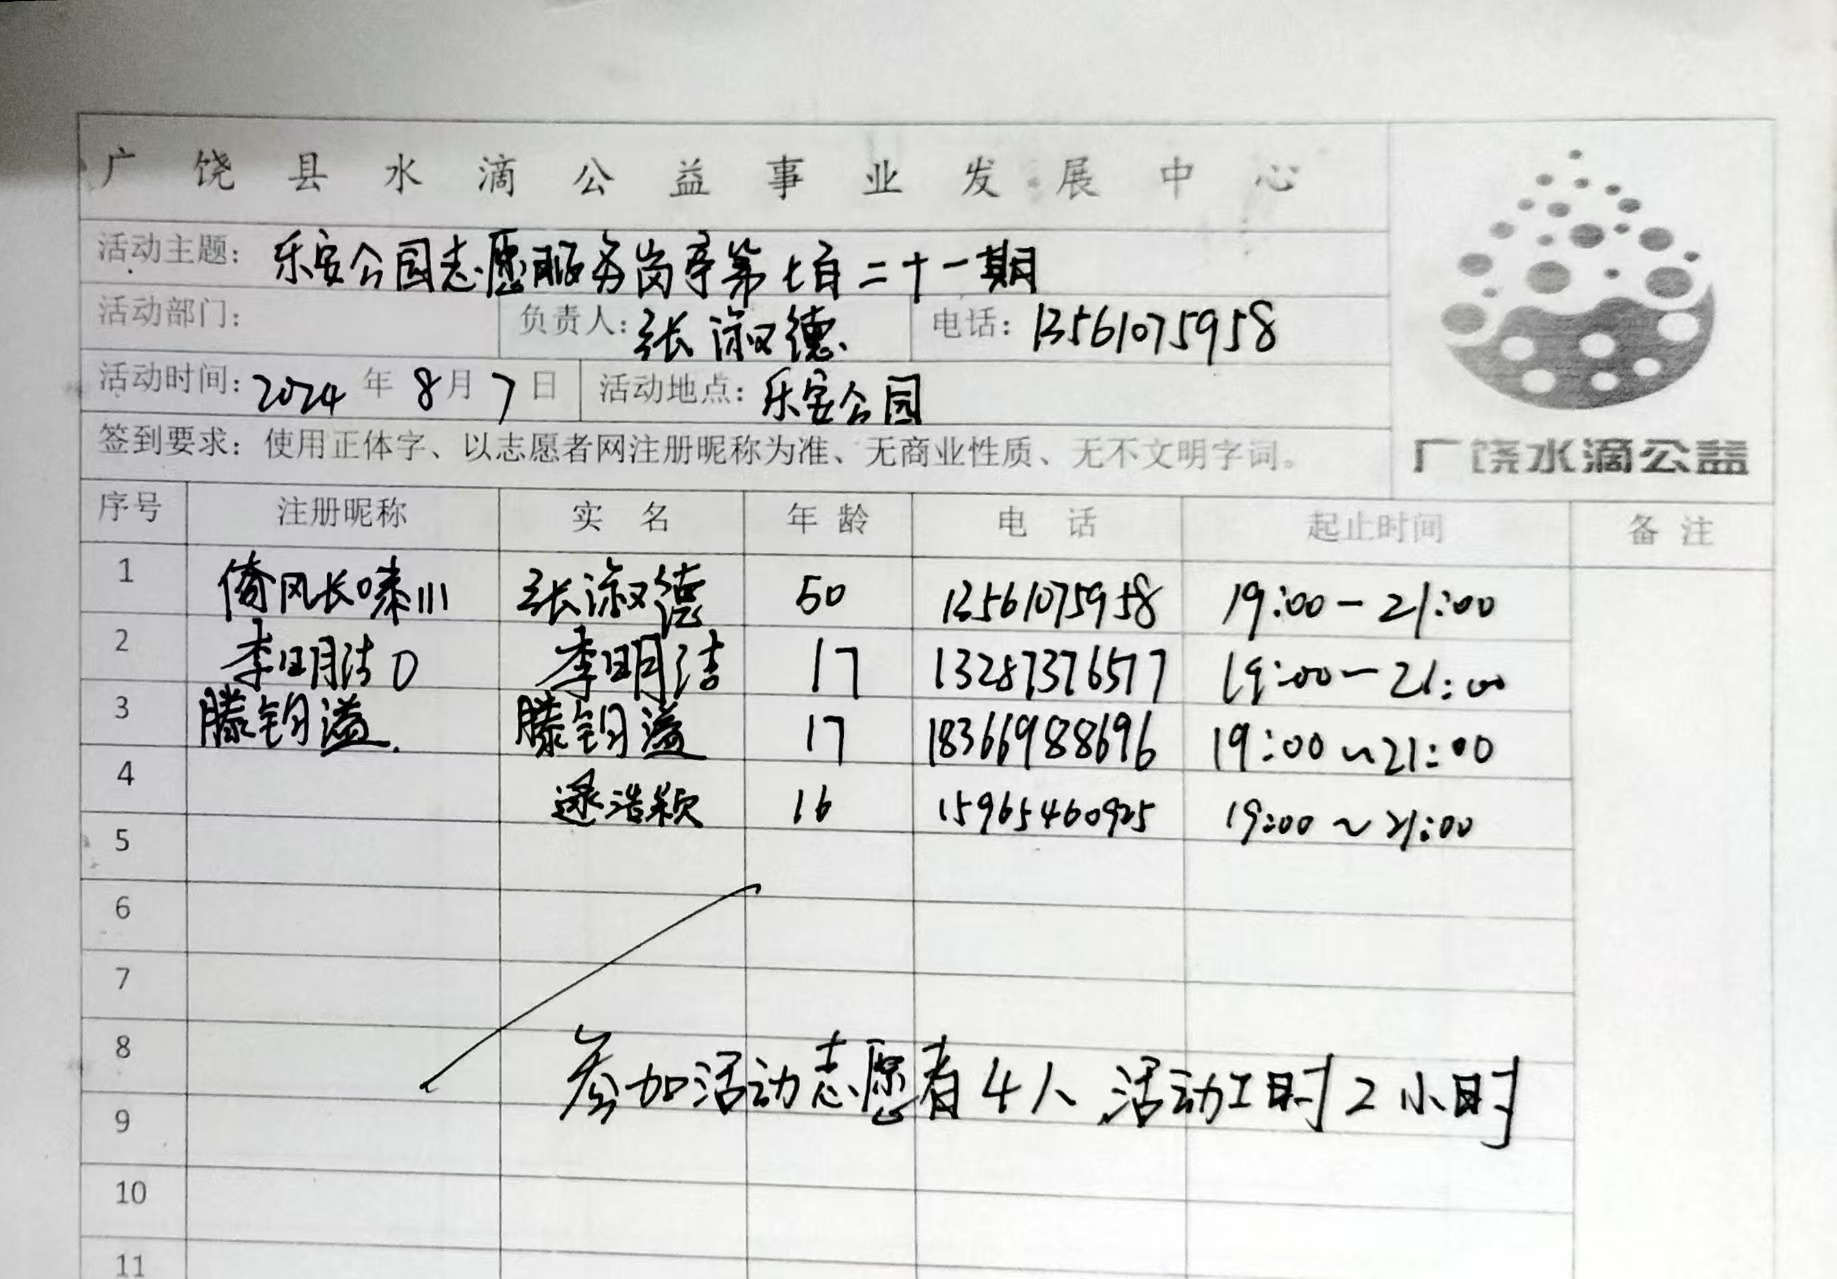 广饶县水滴公益事业发展中心
活动主题：乐安公园志愿服务岗亭第七百二十一期
活动部门： 负责人：张淑德 电话：13561075958
活动时间：2024年8月7日 活动地点：乐安公园
签到要求：使用正体字、以志愿者网注册昵称为准、无商业性质、无不文明字词。
广饶水滴公益
序号 注册昵称 实名 年龄 电话 起止时间 备注
1 倚风长啸111 张淑德 50 13561075958 19:00-21:00
2 李明洁0 李明洁 17 13287376577 19:00-21:00
3 滕钧溢 滕钧溢 17 18366988696 19:00~21:00
4 逯浩颖 16 15965460925 19:00~21:00
5
6
7
8
参加活动志愿者4人 活动工时2小时
9
10
11